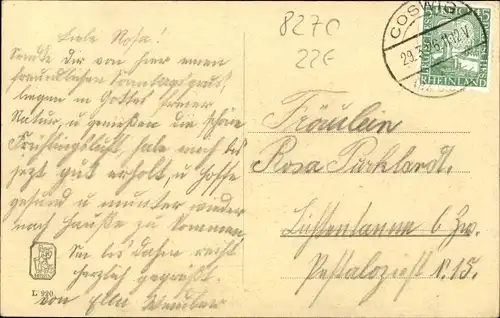 Liebe Rosa!
Sende Dir von hier einen
freundlichen Sonntagsgruß,
liegen in Gottes freier
Natur, u genießen die schöne
Frühlingsluft, habe mich bis
jetzt gut erholt, u hoffe
gesund u munter wieder
nach Hause zu kommen
Sei bis dahin recht
herzlich gegrüßt
von Ella
L 920
8270
22E
COSWIG
29.
RHEINLAND
Fräulein
Rosa
Lichtentanne b Zw.
Pestalozzistr. 15.